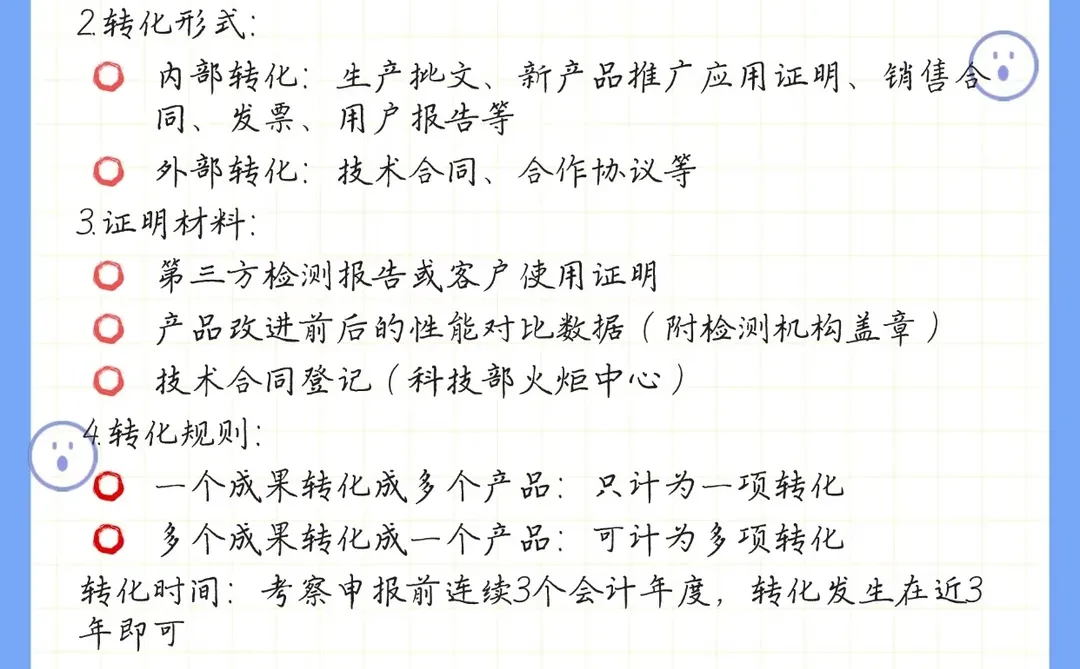 2.转化形式：
内部转化：生产批文、新产品推广应用证明、销售合
同、发票、用户报告等
外部转化：技术合同、合作协议等
3.证明材料：
第三方检测报告或客户使用证明
产品改进前后的性能对比数据（附检测机构盖章）
技术合同登记（科技部火炬中心）
4.转化规则：
一个成果转化成多个产品：只计为一项转化
多个成果转化成一个产品：可计为多项转化
转化时间：考察申报前连续3个会计年度，转化发生在近3
年即可